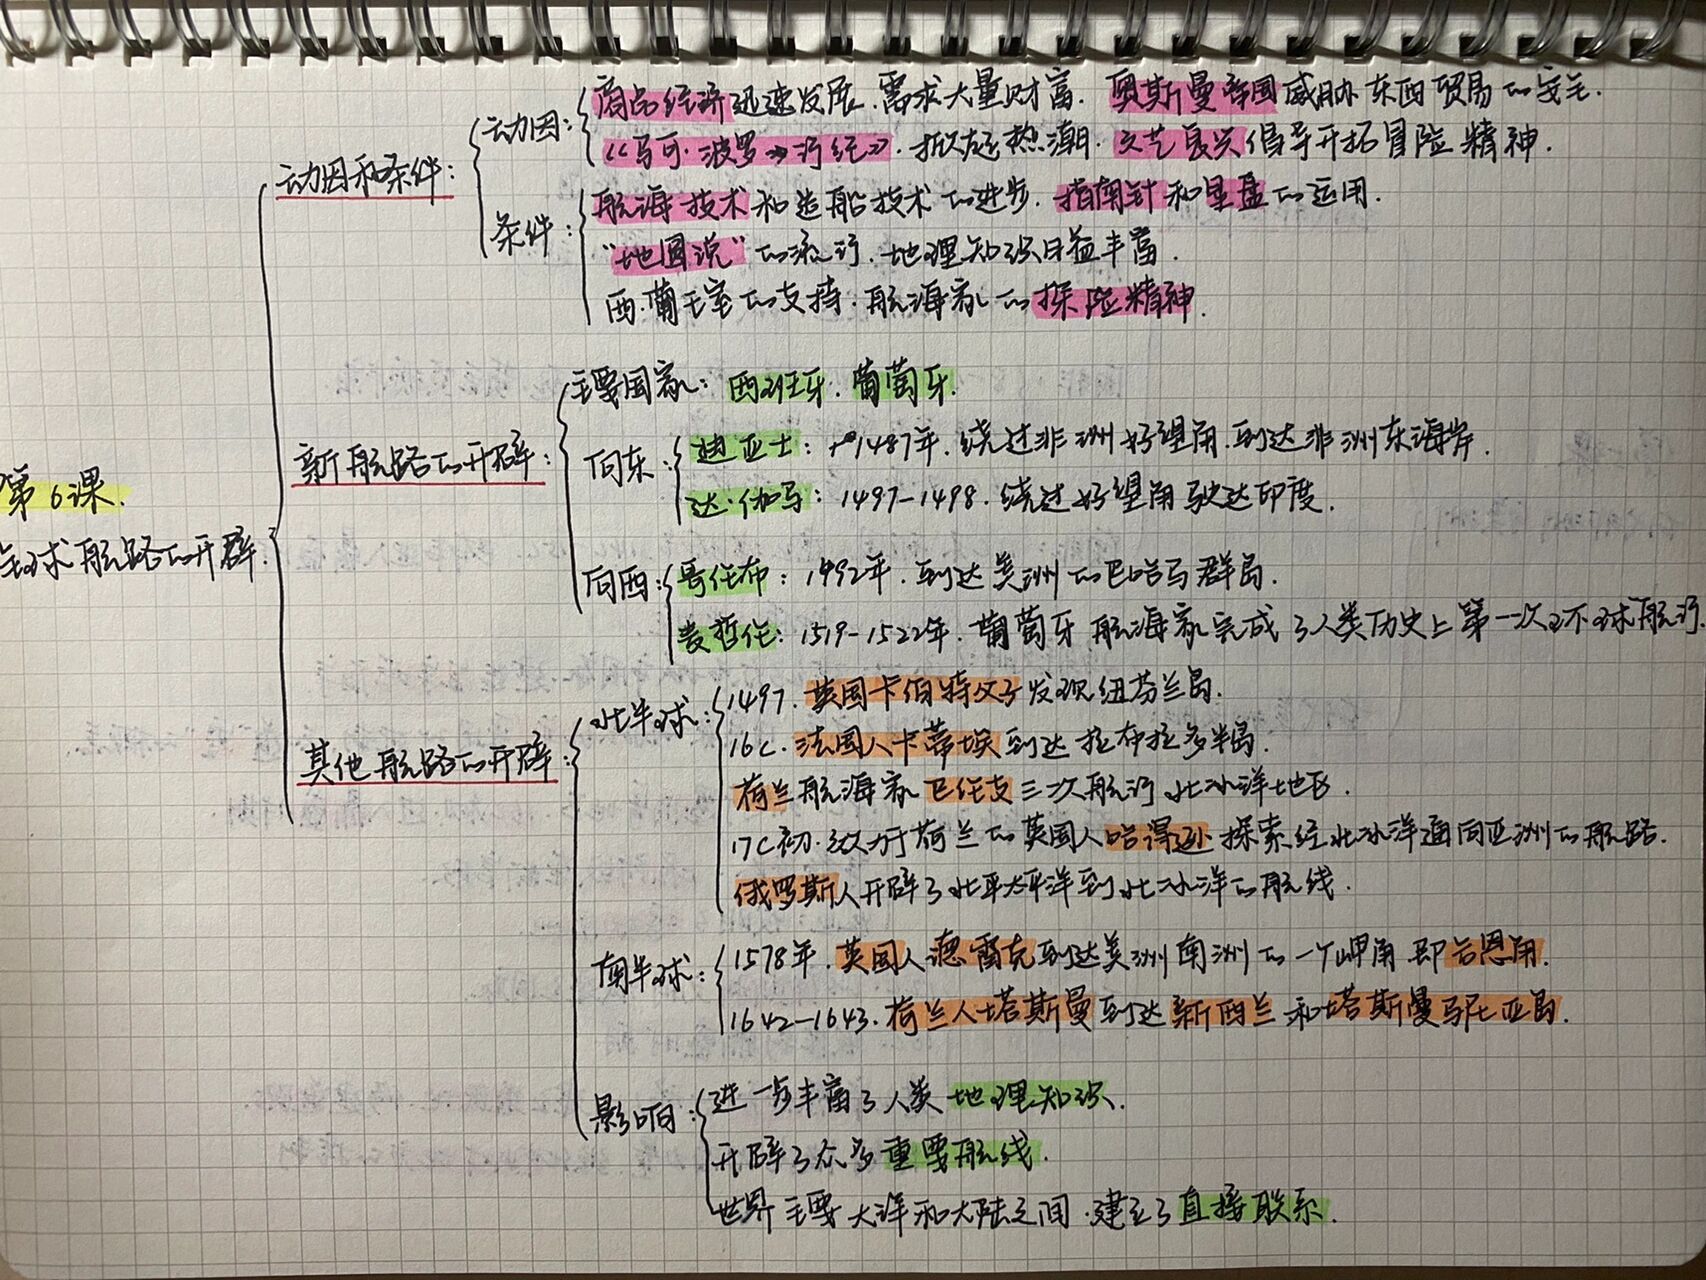 第6课.
全球航路的开辟.
动因和条件:
动因:
商品经济迅速发展.需求大量财富. 奥斯曼帝国威胁东西贸易的安全.
《马可·波罗》行纪》.掀起热潮. 文艺复兴倡导开拓冒险精神.
条件:
航海技术和造船技术的进步. 指南针和星盘的运用.
“地圆说”的流行.地理知识日益丰富.
西.葡王室的支持.航海家的探险精神.
新航路的开辟:
主要国家: 西班牙. 葡萄牙.
向东:
迪亚士: 1487年.绕过非洲好望角.到达非洲东海岸.
达·伽马: 1497-1498.绕过好望角驶达印度.
向西:
哥伦布: 1492年.到达美洲的巴哈马群岛.
麦哲伦: 1519-1522年.葡萄牙航海家完成了人类历史上第一次环球航行.
其他航路的开辟:
北半球:
1497.英国卡伯特父子发现纽芬兰岛.
16C.法国人卡蒂埃到达拉布拉多半岛.
荷兰航海家巴伦支三次航行北冰洋地区.
17C初.效力于荷兰的英国人哈得逊探索经北冰洋通向亚洲的航路.
俄罗斯人开辟了北平太平洋到北冰洋的航线.
南半球:
1578年.英国人德雷克到达美洲南洲的一个岬角即合恩角.
1642-1643.荷兰人塔斯曼到达新西兰和塔斯曼马尼亚岛.
影响:
进一步丰富了人类地理知识.
开辟了众多重要航线.
世界主要大洋和大陆之间.建立了直接联系.